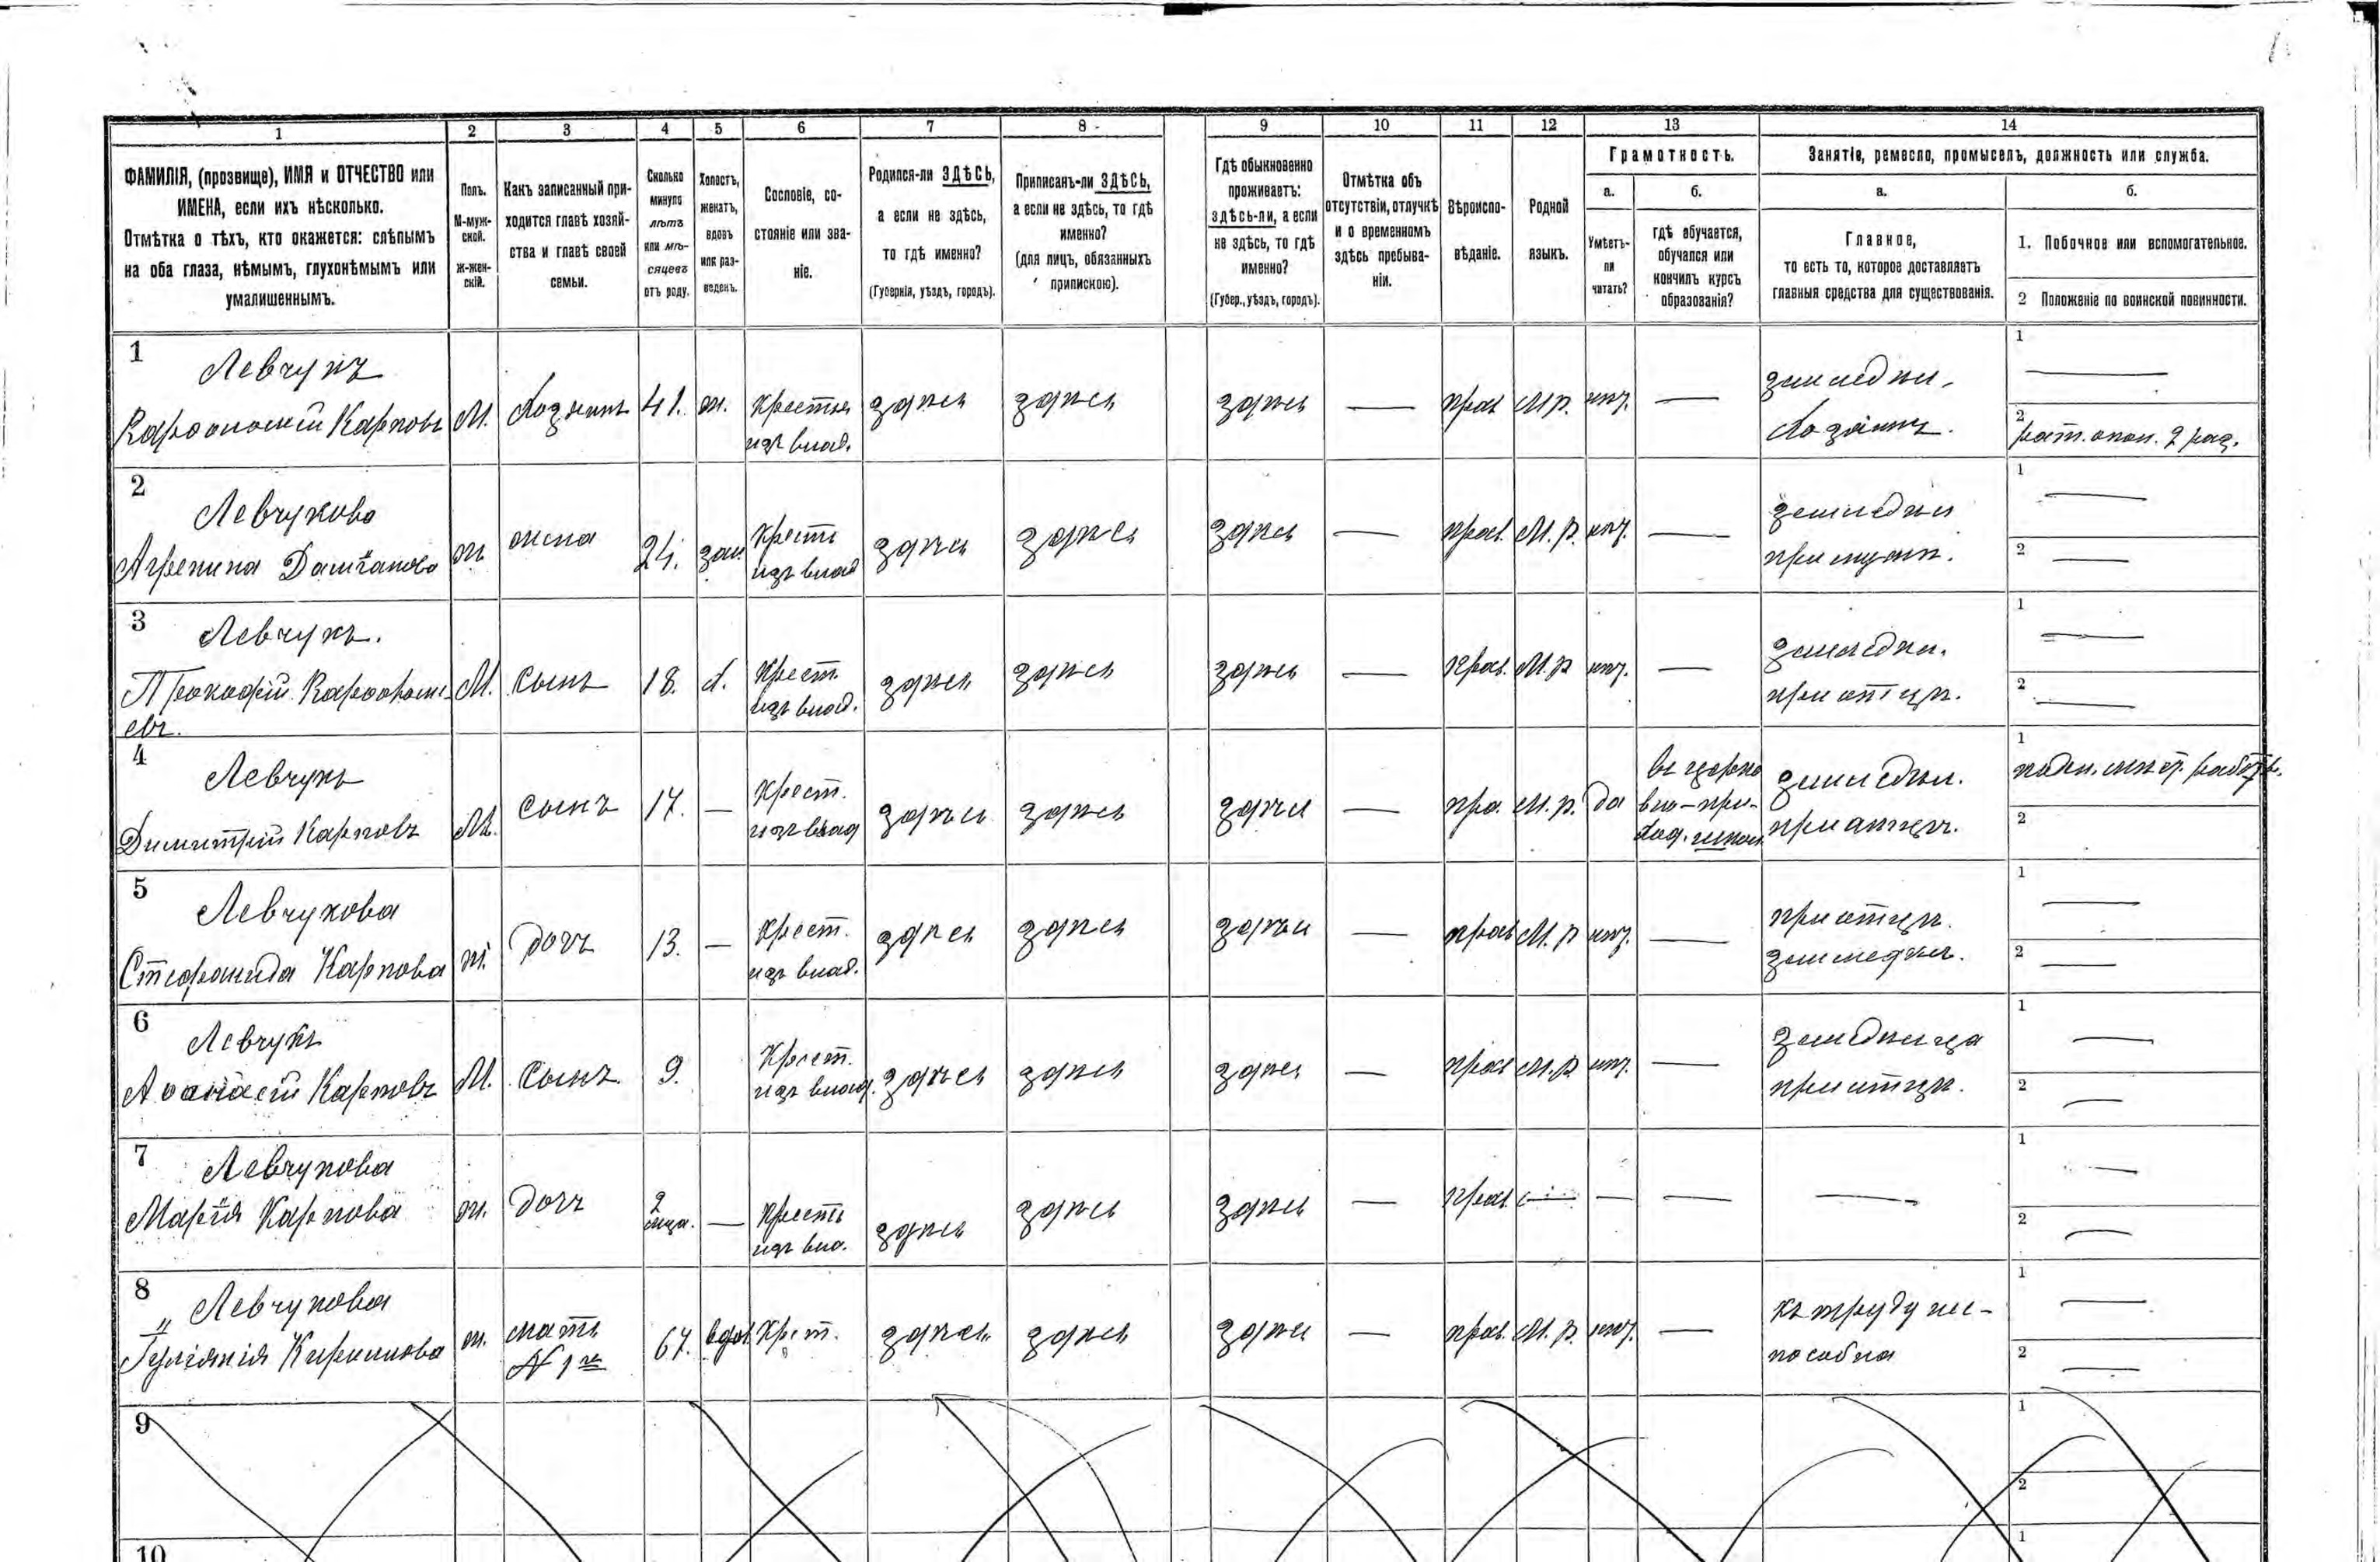 1 2 3 4 5 6 7 8 9 10 11 12 13 14
ФАМИЛІЯ, (прозвище), ИМЯ и ОТЧЕСТВО или
ИМЕНА, если ихъ нѣсколько.
Отмѣтка о тѣхъ, кто окажется: слѣпымъ
на оба глаза, нѣмымъ, глухонѣмымъ или
умалишеннымъ.
Полъ.
М-муж-
ской.
Ж-жен-
скій.
Какъ записанный при-
ходится главѣ хозяй-
ства и главѣ своей
семьи.
Сколько
минуло
лѣтъ
или мѣ-
сяцевъ
отъ роду.
Холостъ,
женатъ,
вдовъ
или раз-
веденъ.
Сословіе, со-
стояніе или зва-
ніе.
Родился-ли ЗДѢСЬ,
а если не здѣсь,
то гдѣ именно?
(Губернія, уѣздъ, городъ).
Приписанъ-ли ЗДѢСЬ,
а если не здѣсь, то гдѣ
именно?
(для лицъ, обязанныхъ
припискою).
Гдѣ обыкновенно
проживаетъ:
здѣсь-ли, а если
не здѣсь, то гдѣ
именно?
(Губер., уѣздъ, городъ).
Отмѣтка объ
отсутствіи, отлучкѣ
и о временномъ
здѣсь пребыва-
ніи.
Вѣроиспо-
вѣданіе.
Родной
языкъ.
Грамотность.
а.
Умѣетъ-
ли
читать?
б.
гдѣ обучается,
обучался или
кончилъ курсъ
образованія?
Занятіе, ремесло, промыселъ, должность или служба.
а.
Главное,
то есть то, которое доставляетъ
главныя средства для существованія.
б.
1. Побочное или вспомогательное.
2 Положеніе по воинской повинности.
1 Левчукъ
Карповъ М. Хозяинъ 41. ж. крестья здѣсь здѣсь здѣсь — прав. М.р. нѣт. —
изъ влад. Хозяинъ. рат. опол. 2 раз.
2 Левчукова
Агрепина ж жена 24. зам. крестъ здѣсь здѣсь здѣсь — прав. М.р. нѣт. —
изъ влад при мужѣ.
3 Левчукъ.
Прокофій М. сынъ 18. х. крест. здѣсь здѣсь здѣсь — прав. М.р нѣт. —
евъ. изъ влад. при отцѣ.
4 Левчукъ
Димитрій Карповъ М. сынъ 17. — крест. здѣсь здѣсь здѣсь — пра. М.р. да
изъ влад
въ церко
вно-при-
ход. школ. при отцѣ.
5 Левчукова
Стефанида Карпова ж. дочь 13. — крест. здѣсь здѣсь здѣсь — прав М.р нѣт. — при отцѣ.
изъ влад.
6 Левчукъ
Аѳанасій Карповъ М. сынъ. 9. Крест. здѣсь здѣсь здѣсь — прав М.р нѣт. —
изъ влад. при отцѣ.
7 Левчукова
Марія Карпова ж. дочь 2 мѣся. — крестъ здѣсь здѣсь здѣсь — прав. — — — —
изъ вла.
8 Левчукова
Кирилова ж. мать 67. вдов. Крест. здѣсь здѣсь здѣсь — прав. М.р. нѣт. — къ труду не-
№ 1го способна
9
10